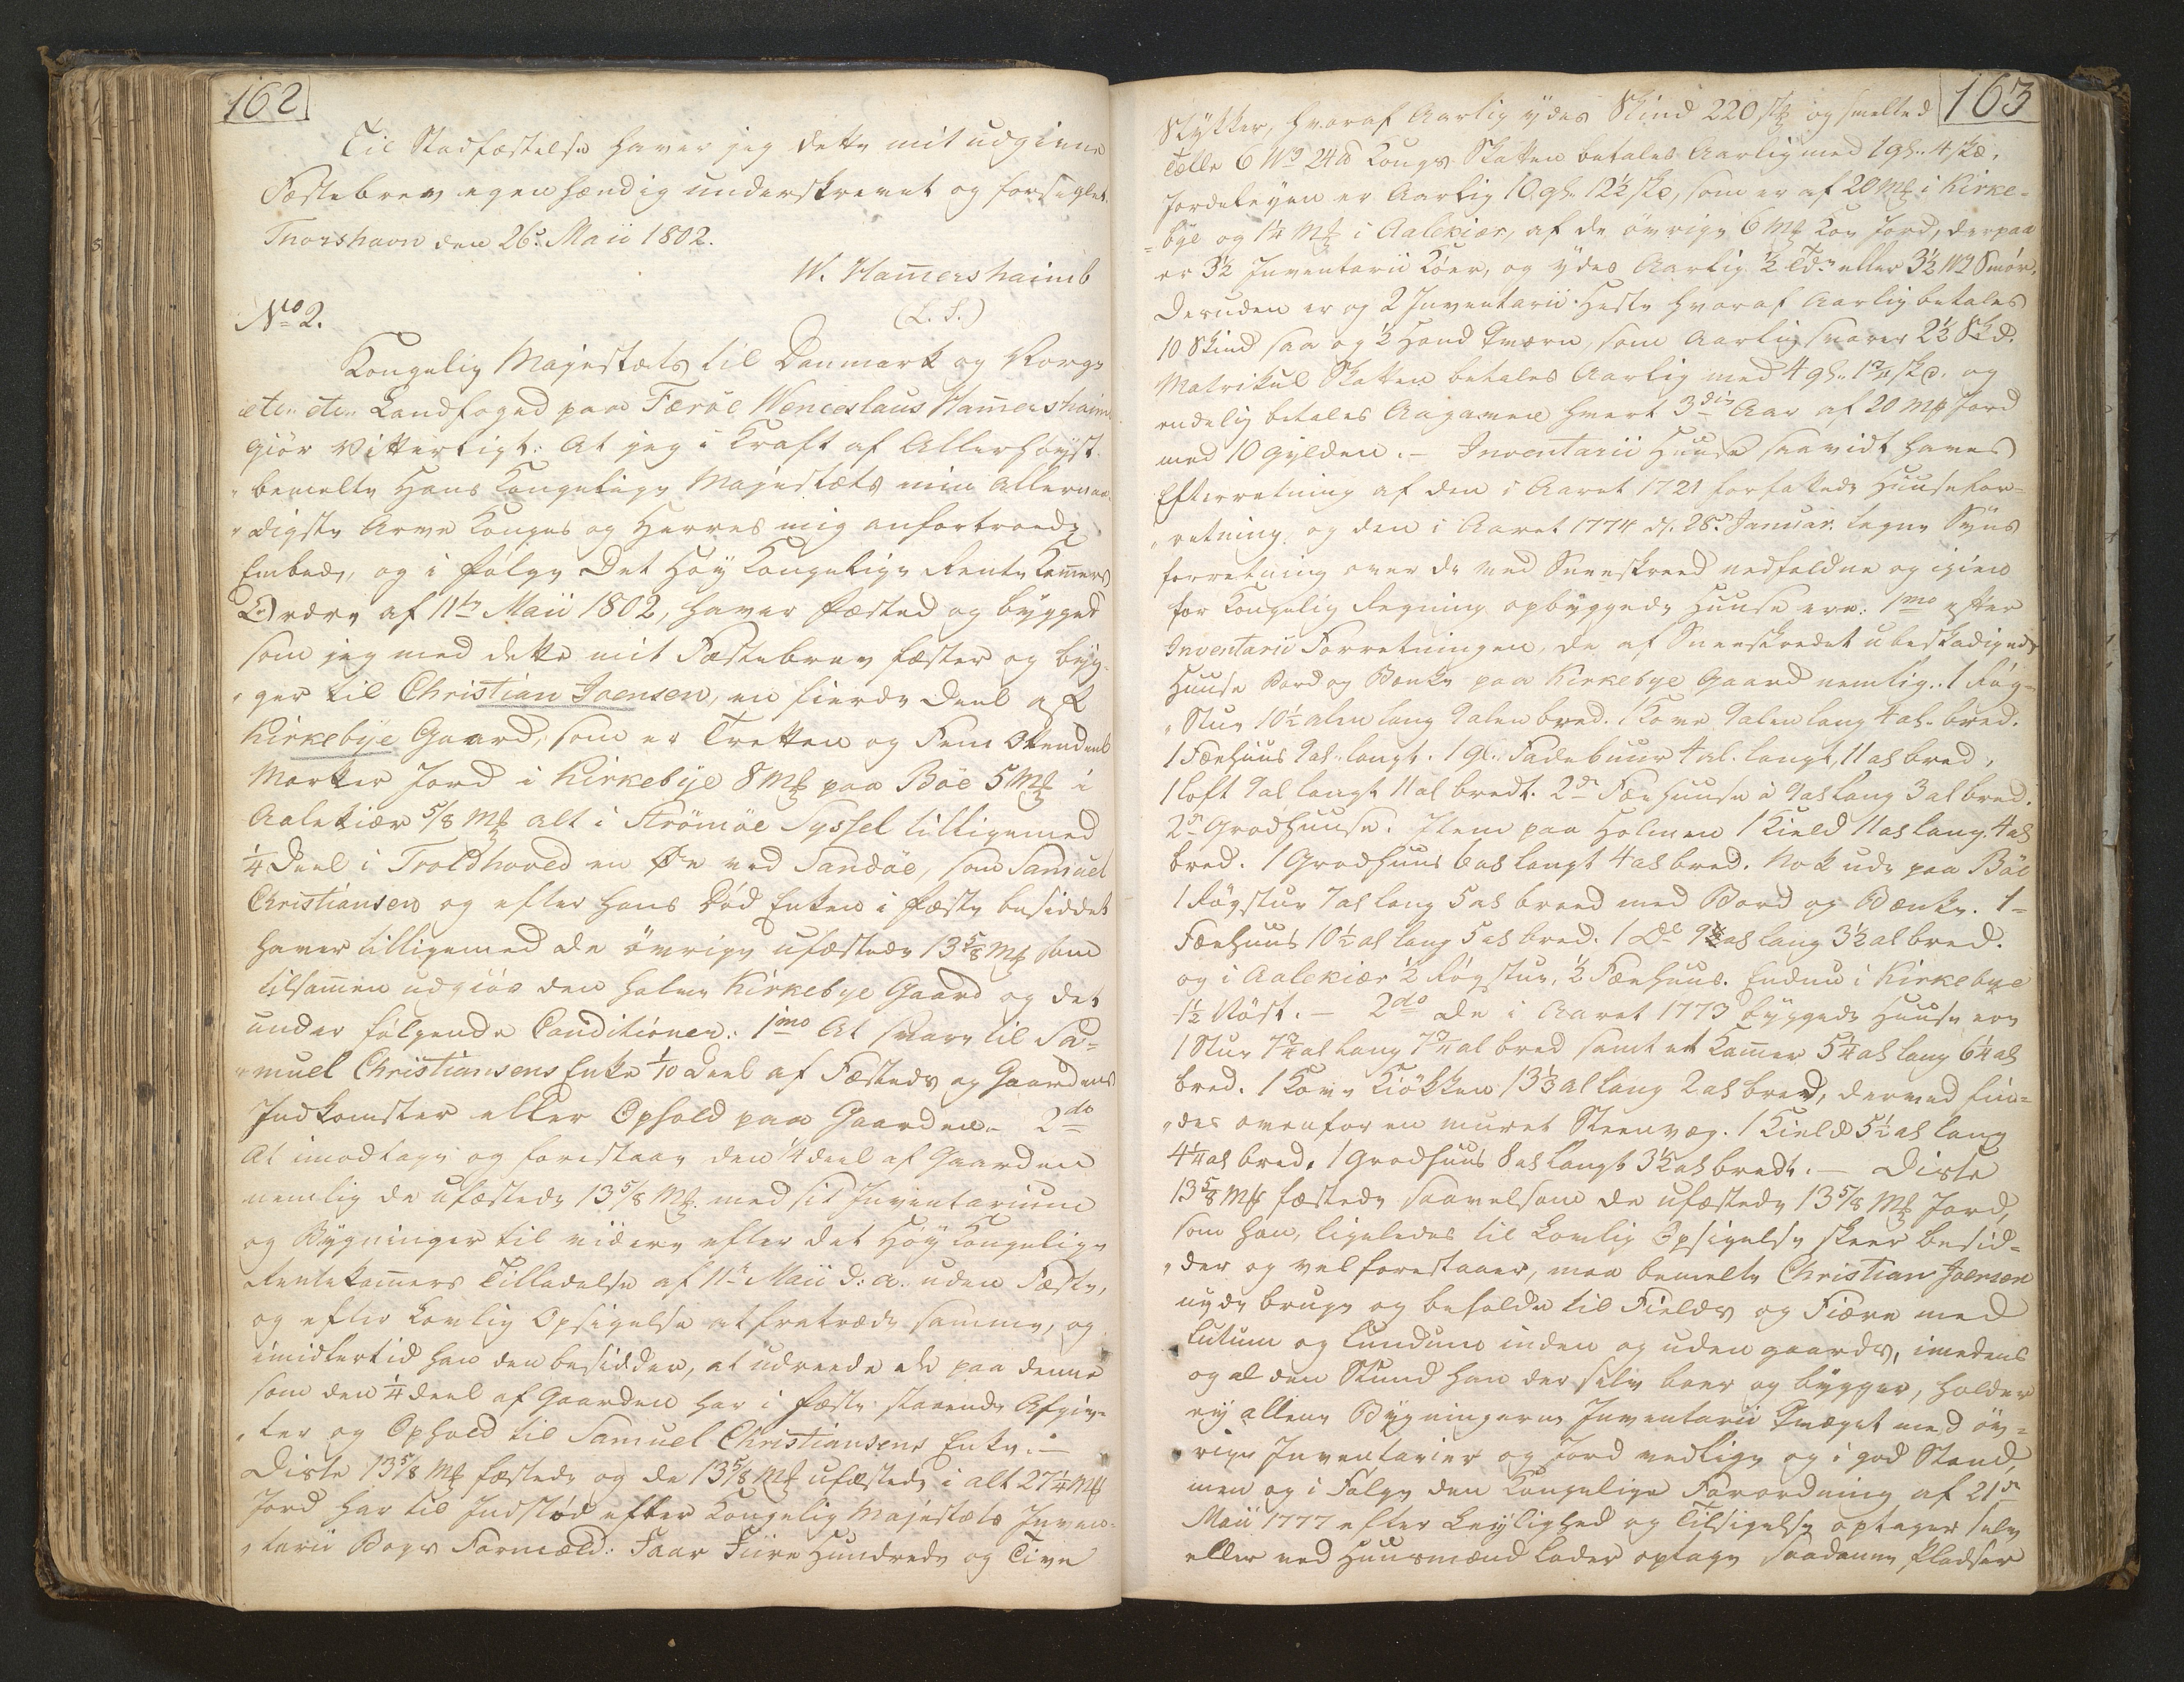 162
Til Stadfæstelse haver jeg dette mit udgivne
Fæstebrev egenhændig underskrevet og forseglet.
Thorshavn den 26d. Maii 1802.
W. Ham̄ershaimb
(L. S.)
No 2.
Kongelig Majestæts til Danmark og Norge
etc. etc. Landfoged paa Færöe Wenceslaus Ham̄ershaimb
giör Vitterligt: At jeg i Kraft af Allerhöyst-
bemelte Hans Kongelige Majestæts min Allernaa-
digste Arve Konges og Herres mig anfortroede
Embede, og i følge Det Høy Kongelige Rente Kam̄ers
Ordre af 11te Maii 1802, haver fæsted og bygget
som jeg med dette mit Fæstebrev fæster og byg-
ger til Christian Joensen, en fierde Deel af
Kirkebÿe Gaard, som er Tretten og Fem Ottendeel
Marker Jord i Kirkebÿe 8 Mk paa Böe 5 Mk i
Aalekiær 5/8 Mk alt i Strömöe Syssel tilligemed
1/4 Deel i Troldhoved en Öe ved Sandöe, som Samuel
Christiansen og efter hans Död Enken i fæste besiddet
haver tilligemed de övrige ufæstede 13 5/8 Mk som
tilsam̄en udgiör den halve Kirkebye Gaard og det
under fölgende Conditioner: 1mo At svare til Sa-
muel Christiansens Enke 1/10 Deel af Fæstets og Gaardens
Indkomster eller Ophold paa Gaarden. 2do
At imodtage og forestaae den 1/4 deel af Gaarden
nemlig de ufæstede 13 5/8 Mk. med sit Inventarium
og Bÿgninger til videre efter det Höy Kongelige
Rentekam̄ers Tilladelse af 11te Maii d: a. uden Fæste,
og efter Lovlig Opsigelse at fratræde samme, og
imidlertid han den besidder, at udreede de paa denne
som den 1/4 deel af Gaarden har i fæste staaende Afgiv-
ter og Ophold til Samuel Christiansens Enke.—
Disse 13 5/8 Mk fæstede og de 13 5/8 Mk ufæstede i alt 27 1/4 Mk
Jord har til Indstöd efter Kongelig Majestæts Inven-
tarii Bogs Formæld: Faar Fiire Hundrede og Tive
163
Stÿkker, hvoraf Aarlig ydes Skind 220 stk og smelted
Tælle 6 Wg 24 lb Kongs Skatten betales Aarlig med 1 gl. 4 skd.
Jordeleyen er Aarlig 10 gl. 12 1/2 skd, som er af 20 Mk i Kirke-
bÿe og 1 1/4 Mk i Aalekiær, af de övrige 6 Mk Koe Jord, derpaa
er 3 1/2 Inventarii Köer, og ydes Aarlig 1/2 Tde eller 3 1/2 Wg Smör.
Desuden er og 2 Inventarii Heste hvoraf Aarlig betales
10 Skind saa og 1/2 Hand Qværn, som Aarlig svarer 2 1/2 Skd.
Matrikul Skatten betales Aarlig med 4 gl. 1 3/4 skd. og
endelig betales Aagaven hvert 3die Aar af 20 Mk Jord
med 10 Gylden. — Inventarii Huuse saavidt haves
Efterretning af den i Aaret 1721 forfattede Huusefor-
retning og den i Aaret 1774 d. 28d Januar. tagne Sÿns
forretning over de ved Sneeskreed nedfaldne og igien
for Kongelig Regning opbyggede Huuse ere: 1mo efter
Inventarii Forretningen, de af Sneeskredet ubeskadigede
Huuse Bord og Bænke paa Kirkebÿe Gaard nemlig. 1 Røg-
Stue 10 1/2 alen lang 9 alen bred. 1 Kove 9 alen lang 4 al. bred.
1 Fæehuus 9 al. langt. 1 gl. Fadebuur 4 al. langt, 11 al bred,
1 Loft 9 al langt 11 al bredt. 2de Fæehuuse à 9 al lang 3 al bred.
2de Grodhuuse. Item paa Holmen 1 Kield 11 al lang. 4 al
bred. 1 Grodhuus 6 al langt 4 al bred. Nok ude paa Böe
1 Røgstue 7 al lang 5 al breed med Bord og Bænke. 1
Fæehuus 10 1/2 al lang 5 al bred. 1 Do 9 al lang 3 1/2 al bred.
og i Aalekiær 1/2 Røgstue, 1/2 Fæehuus. Endnu i Kirkebye
1/2 Nöst. — 2do De i Aaret 1773 byggede Huuse ere
1 Stue 7 3/4 al lang 7 3/4 al bred samt et Kam̄er 5 3/4 al lang 6 1/4 al
bred. 1 Kove Kiökken 13 1/3 al lang 2 al bred, derved fin-
des ovenfor en muret Steenvæg. 1 Kield 5 1/2 al lang
4 1/4 al bred. 1 Grodhuus 8 al langt 3 1/2 al bredt. — Disse
13 5/8 Mk fæstede saavelsom de ufæstede 13 5/8 Mk Jord,
som han, ligeledes til Lovlig Opsigelse skeer besid-
der og vel forestaaer, maa bemelte Christian Joensen
nyde bruge og beholde til Fields og Fiære med
Lutum og Lundum inden og uden gaards, imedens
og al den Stund han der selv boer og bygger, holder
eÿ allene Bÿgningerne Inventarii Qvæget med öv-
rige Inventarier og Jord vedlige og i god Stand,
men og i Fölge den Kongelige Forordning af 21de
Maii 1777 efter Leylighed og Tilsigelse optager selv
eller ved Huusmænd lader optage saadanne Pladser